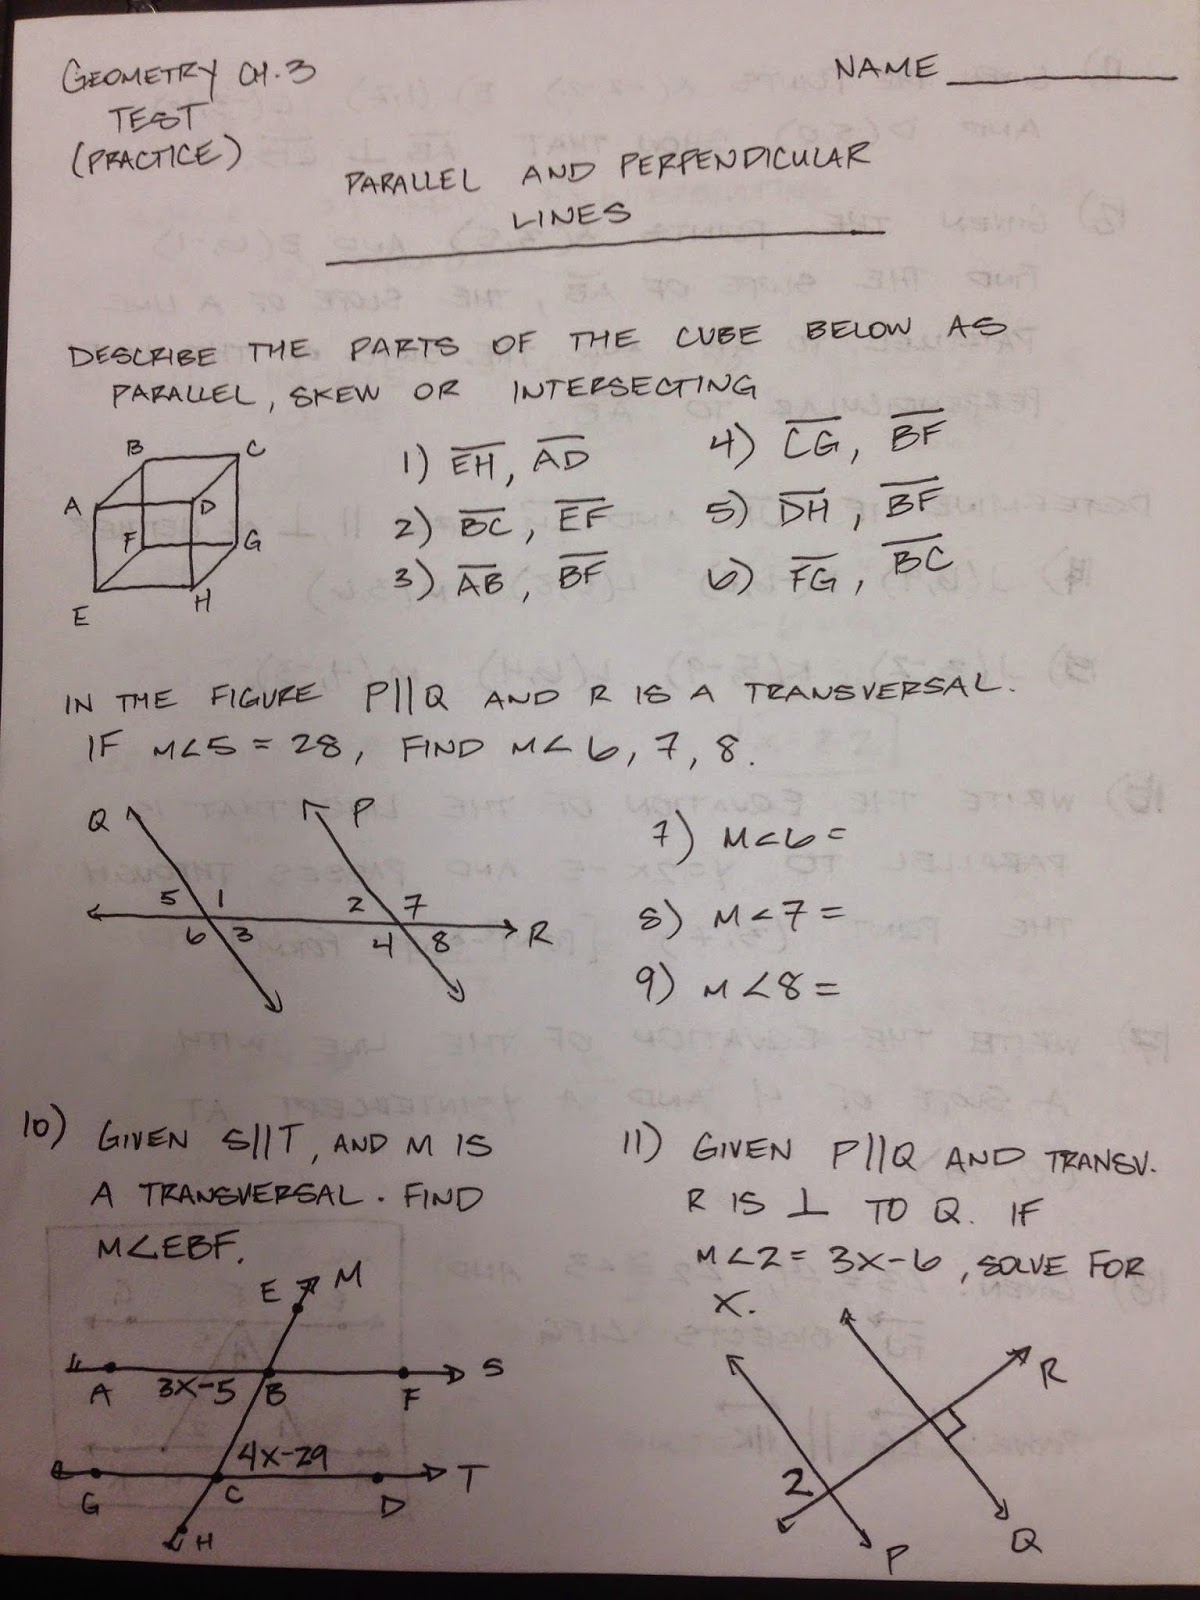 GEOMETRY CH.3
TEST
(PRACTICE)
NAME
PARALLEL AND PERPENDICULAR
LINES
DESCRIBE THE PARTS OF THE CUBE BELOW AS
PARALLEL, SKEW OR INTERSECTING
B C
A D
F G
E H
1) EH, AD
2) BC, EF
3) AB, BF
4) CG, BF
5) DH, BF
6) FG, BC
IN THE FIGURE P||Q AND R IS A TRANSVERSAL.
IF M<5 = 28, FIND M< 6, 7, 8.
Q P
5 1 2 7
6 3 4 8 R
7) M<6=
8) M<7=
9) M<8=
10) GIVEN S||T, AND M IS
A TRANSVERSAL. FIND
M<EBF.
E M
A 3X-5 B F S
4X-29
G C D T
H
11) GIVEN P||Q AND TRANSV.
R IS ⊥ TO Q. IF
M<2= 3X-6, SOLVE FOR
X.
R
2
P Q